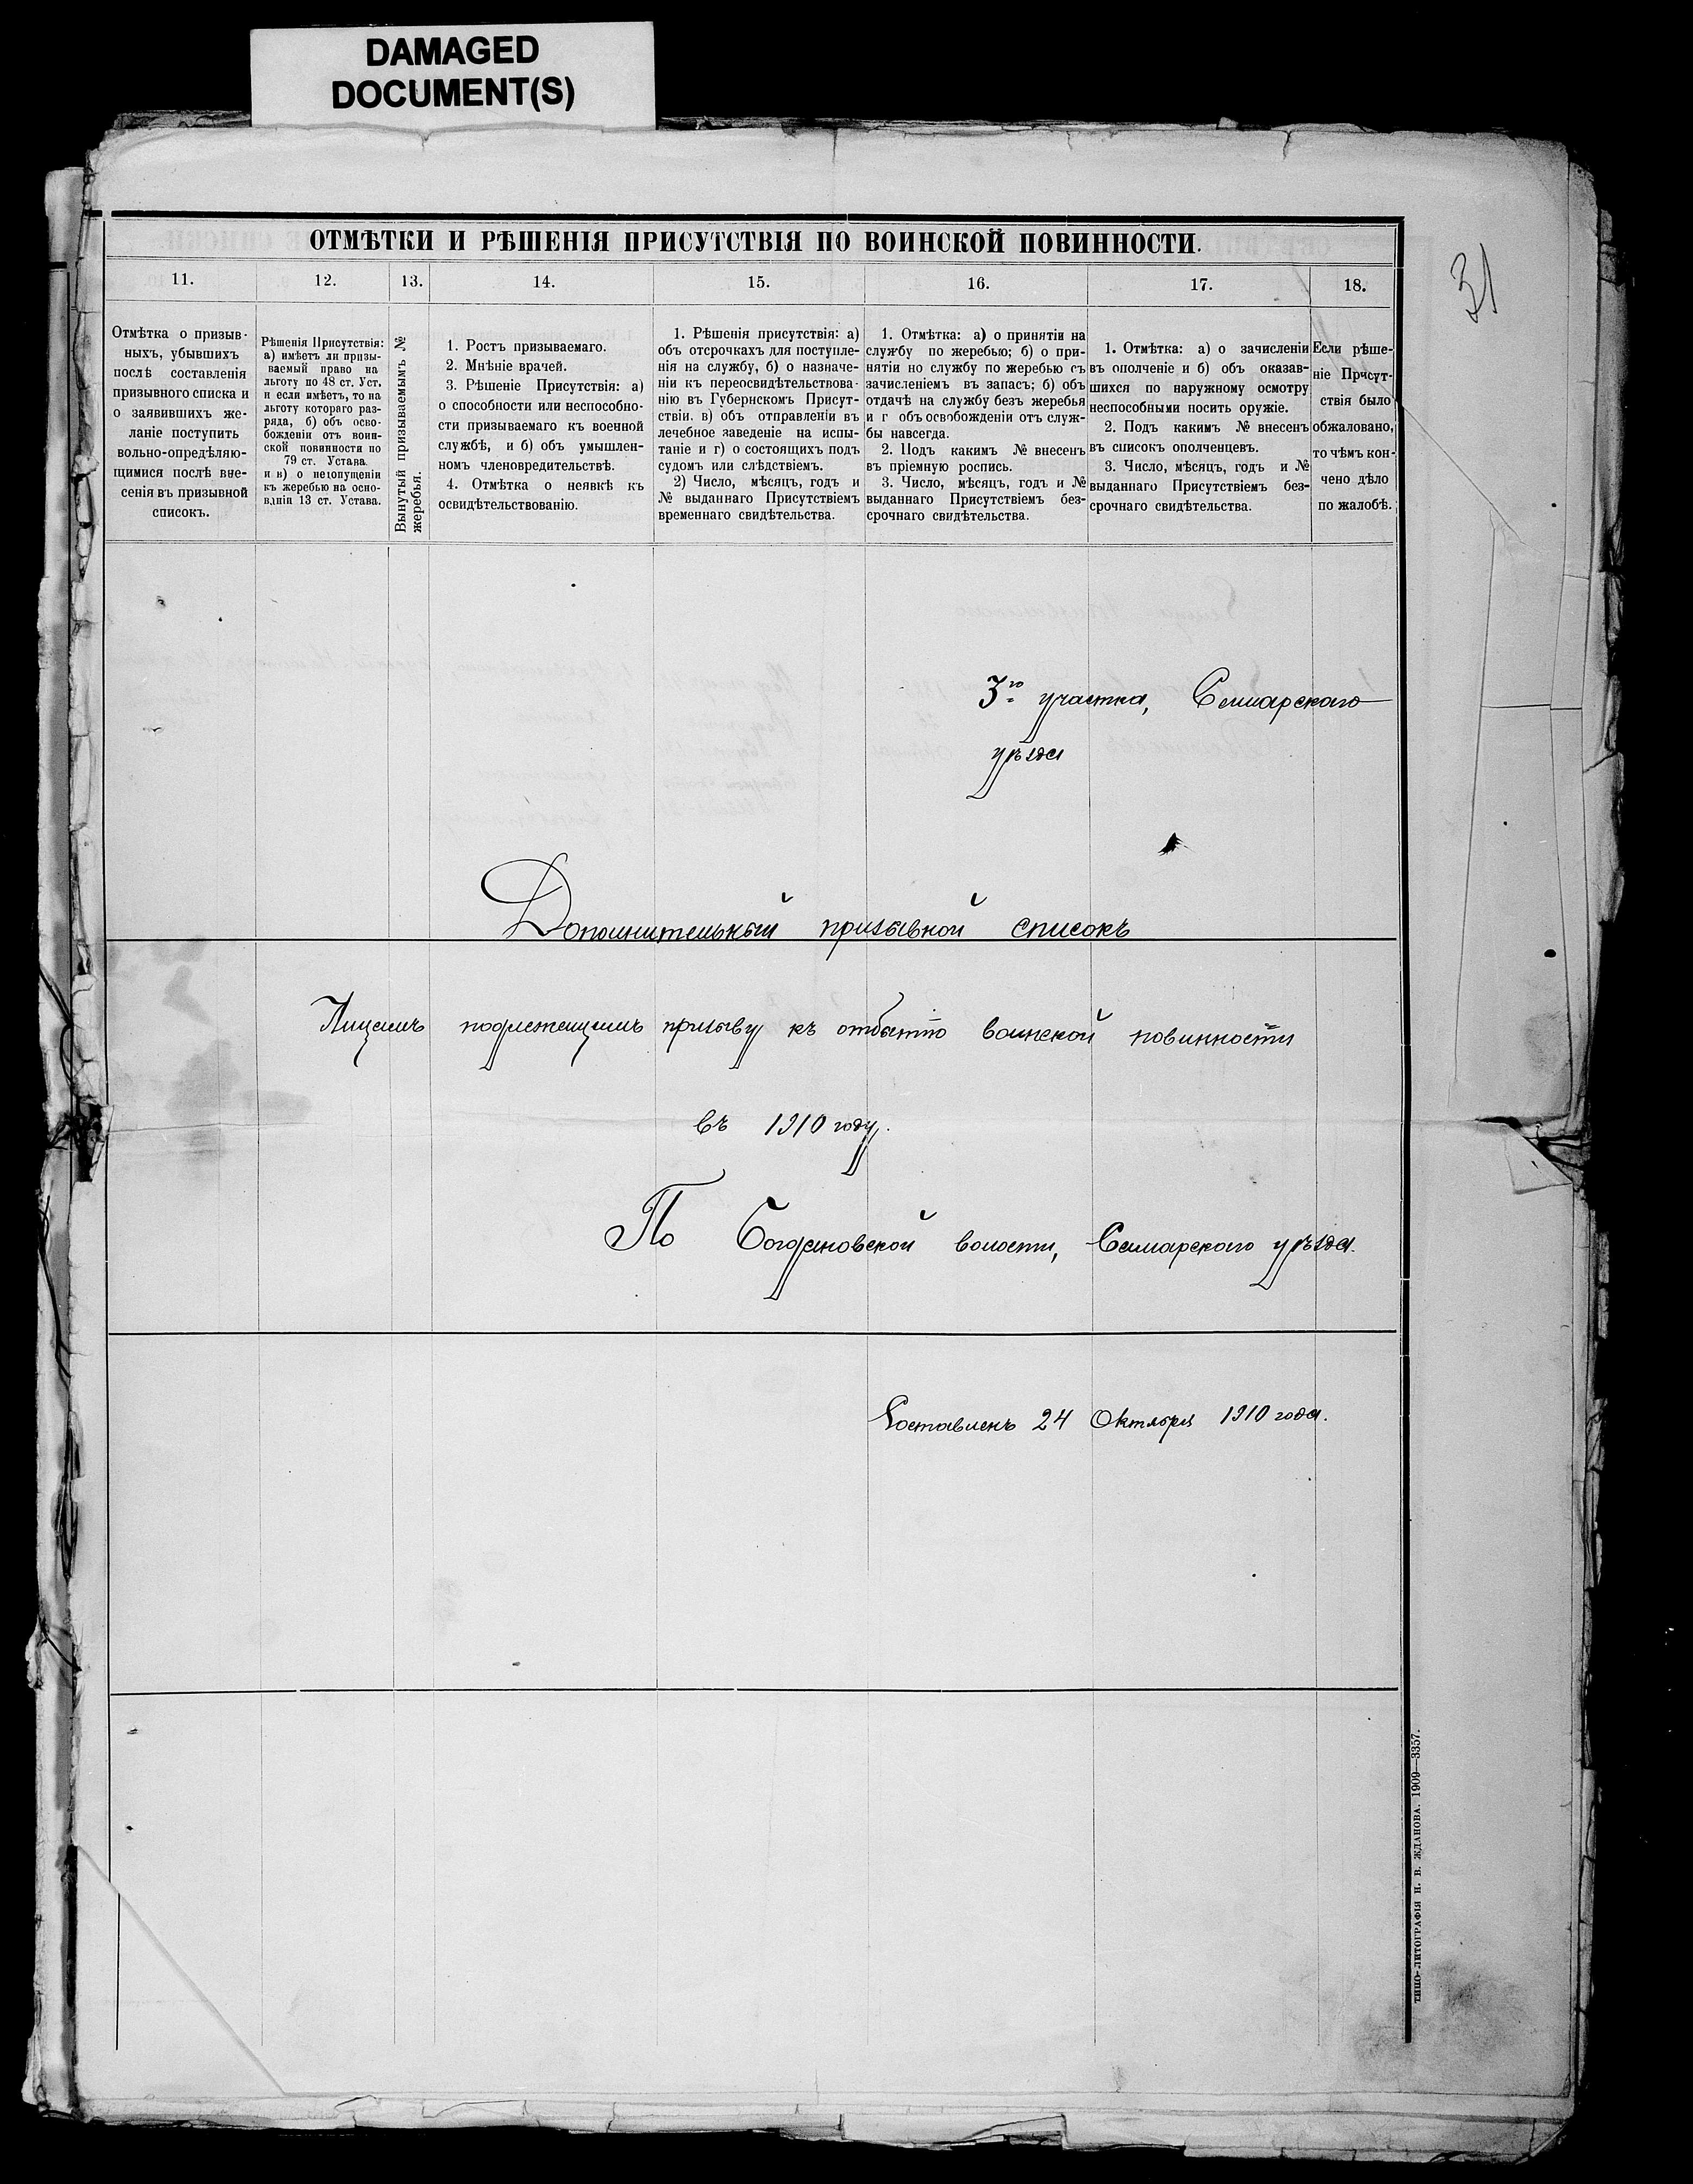 DAMAGED
DOCUMENT(S)
31
ОТМѢТКИ И РѢШЕНІЯ ПРИСУТСТВІЯ ПО ВОИНСКОЙ ПОВИННОСТИ.
11.
12.
13.
14.
15.
16.
17.
18.
Отмѣтка о призыв-
ныхъ, убывшихъ
послѣ составленія
призывного списка и
о заявившихъ же-
ланіе поступить
вольно-опредѣляю-
щимися послѣ вне-
сенія въ призывной
списокъ.
Рѣшенія Присутствія:
а) имѣетъ ли призы-
ваемый право на
льготу по 48 ст. Уст.
и если имѣетъ, то на
льготу котораго раз-
ряда, б) объ осво-
божденіи отъ воин-
ской повинности по
79 ст. Устава.
и в) о недопущеніи
къ жеребью на осно-
ваніи 13 ст. Устава.
Вынутый призываемымъ №
жеребья.
1. Ростъ призываемаго.
2. Мнѣніе врачей.
3. Рѣшеніе Присутствія: а)
о способности или неспособно-
сти призываемаго къ военной
службѣ, и б) объ умышлен-
номъ членовредительствѣ.
4. Отмѣтка о неявкѣ къ
освидѣтельствованію.
1. Рѣшенія присутствія: а)
объ отсрочкахъ для поступле-
нія на службу, б) о назначе-
ніи къ переосвидѣтельствова-
нію въ Губернскомъ Присут-
ствіи. в) объ отправленіи въ
лечебное заведеніе на испы-
таніе и г) о состоящихъ подъ
судомъ или слѣдствіемъ.
2) Число, мѣсяцъ, годъ и
№ выданнаго Присутствіемъ
временнаго свидѣтельства.
1. Отмѣтка: а) о принятіи на
службу по жеребью; б) о при-
нятіи но службу по жеребью съ
зачисленіемъ въ запасъ; б) объ
отдачѣ на службу безъ жеребья
и г объ освобожденіи отъ служ-
бы навсегда.
2. Подъ какимъ № внесенъ
въ пріемную роспись.
3. Число, мѣсяцъ, годъ и №
выданнаго Присутствіемъ без-
срочнаго свидѣтельства.
1. Отмѣтка: а) о зачисленіи
въ ополченіе и б) объ оказав-
шихся по наружному осмотру
неспособными носить оружіе.
2. Подъ какимъ № внесенъ
въ списокъ ополченцевъ.
3. Число, мѣсяцъ, годъ и №
выданнаго Присутствіемъ без-
срочнаго свидѣтельства.
Если рѣше-
ніе Присут-
ствія было
обжаловано,
то чѣмъ кон-
чено дѣло
по жалобѣ.
3го участка, Самарскаго
уѣзда
Дополнительный призывной списокъ
Лицамъ подлежащимъ призыву къ отбытію воинской повинности
въ 1910 году.
По Богдановской волости, Самарскаго уѣзда.
Составленъ 24 Октября 1910 года.
ТИПО-ЛИТОГРАФІЯ Н. В. ЖДАНОВА. 1909—3357.